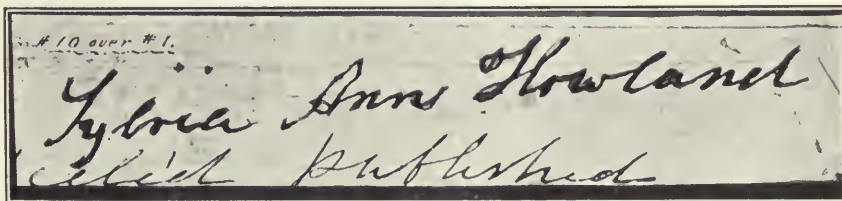 #10 over #1.
Sylvia Ann Howland
published